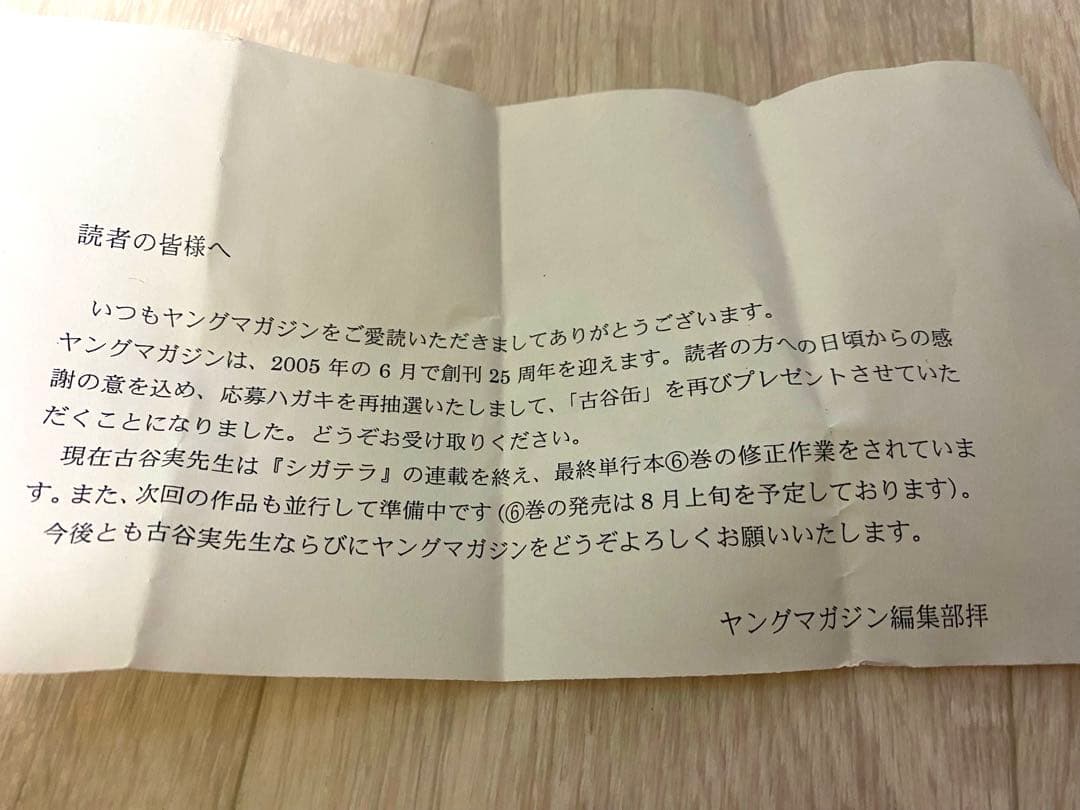 読者の皆様へ
いつもヤングマガジンをご愛読いただきましてありがとうございます。
ヤングマガジンは、2005年の6月で創刊25周年を迎えます。読者の方への日頃からの感
謝の意を込め、応募ハガキを再抽選いたしまして、「古谷缶」を再びプレゼントさせていた
だくことになりました。どうぞお受け取りください。
現在古谷実先生は『シガテラ』の連載を終え、最終単行本⑥巻の修正作業をされていま
す。また、次回の作品も並行して準備中です(⑥巻の発売は8月上旬を予定しております)。
今後とも古谷実先生ならびにヤングマガジンをどうぞよろしくお願いいたします。
ヤングマガジン編集部拝